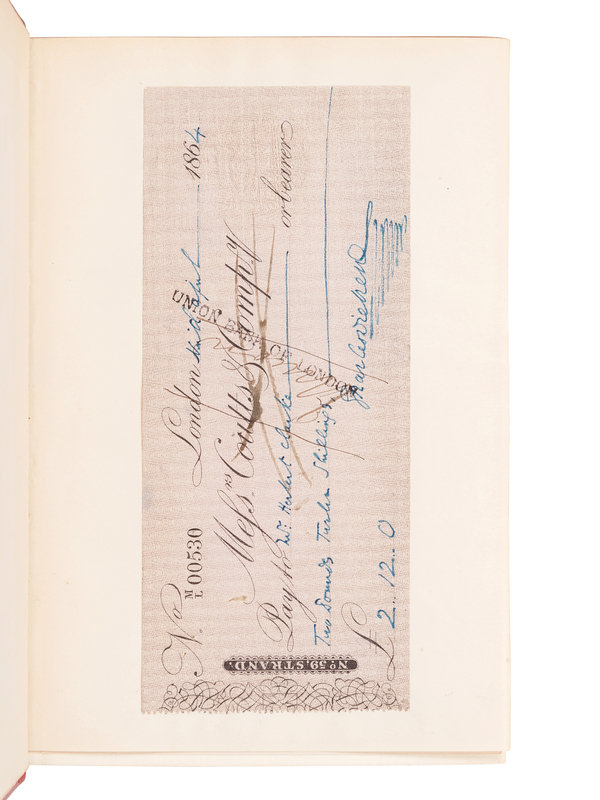 No. M/L 00530 London April 1864
Meſsrs. Coutts & Compy
UNION BANK OF LONDON
Pay to Mr. Herbert Clarke or bearer
Two Pounds Twelve Shillings
Charles Dickens
£ 2..12..0
No. 59, STRAND.